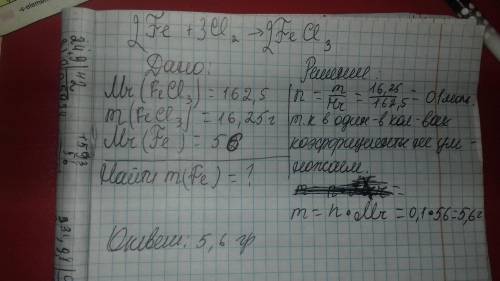 2Fe + 3Cl2 → 2FeCl3
Дано:
Mr (FeCl3) = 162,5
m (FeCl3) = 16,25г
Mr (Fe) = 56
Найти m(Fe) = ?
Решение:
n = m/Mr = 16,25/162,5 = 0,1 мол.
т.к в один-в кол-вах
коэффициенты не ум-
ножаем.
m = n • Mr = 0,1•56=5,6г
Ответ: 5,6 гр